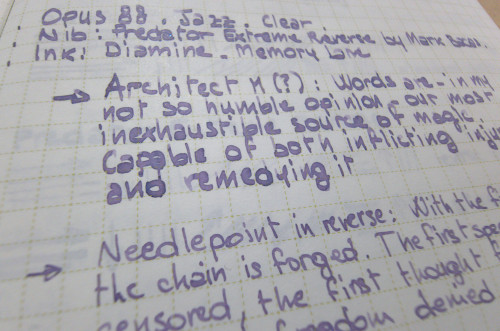 Opus 88. Jazz. Clear
Nib: Predator Extreme Reverse by Mark
Ink: Diamine - Memory Lane
→ Architect M(?): Words are - in my
not so humble opinion - our most
inexhaustible source of magic.
Capable of both inflicting
and remedying it
→ Needlepoint in reverse: With the
the chain is forged. The first
censored, the first thought
freedom denied